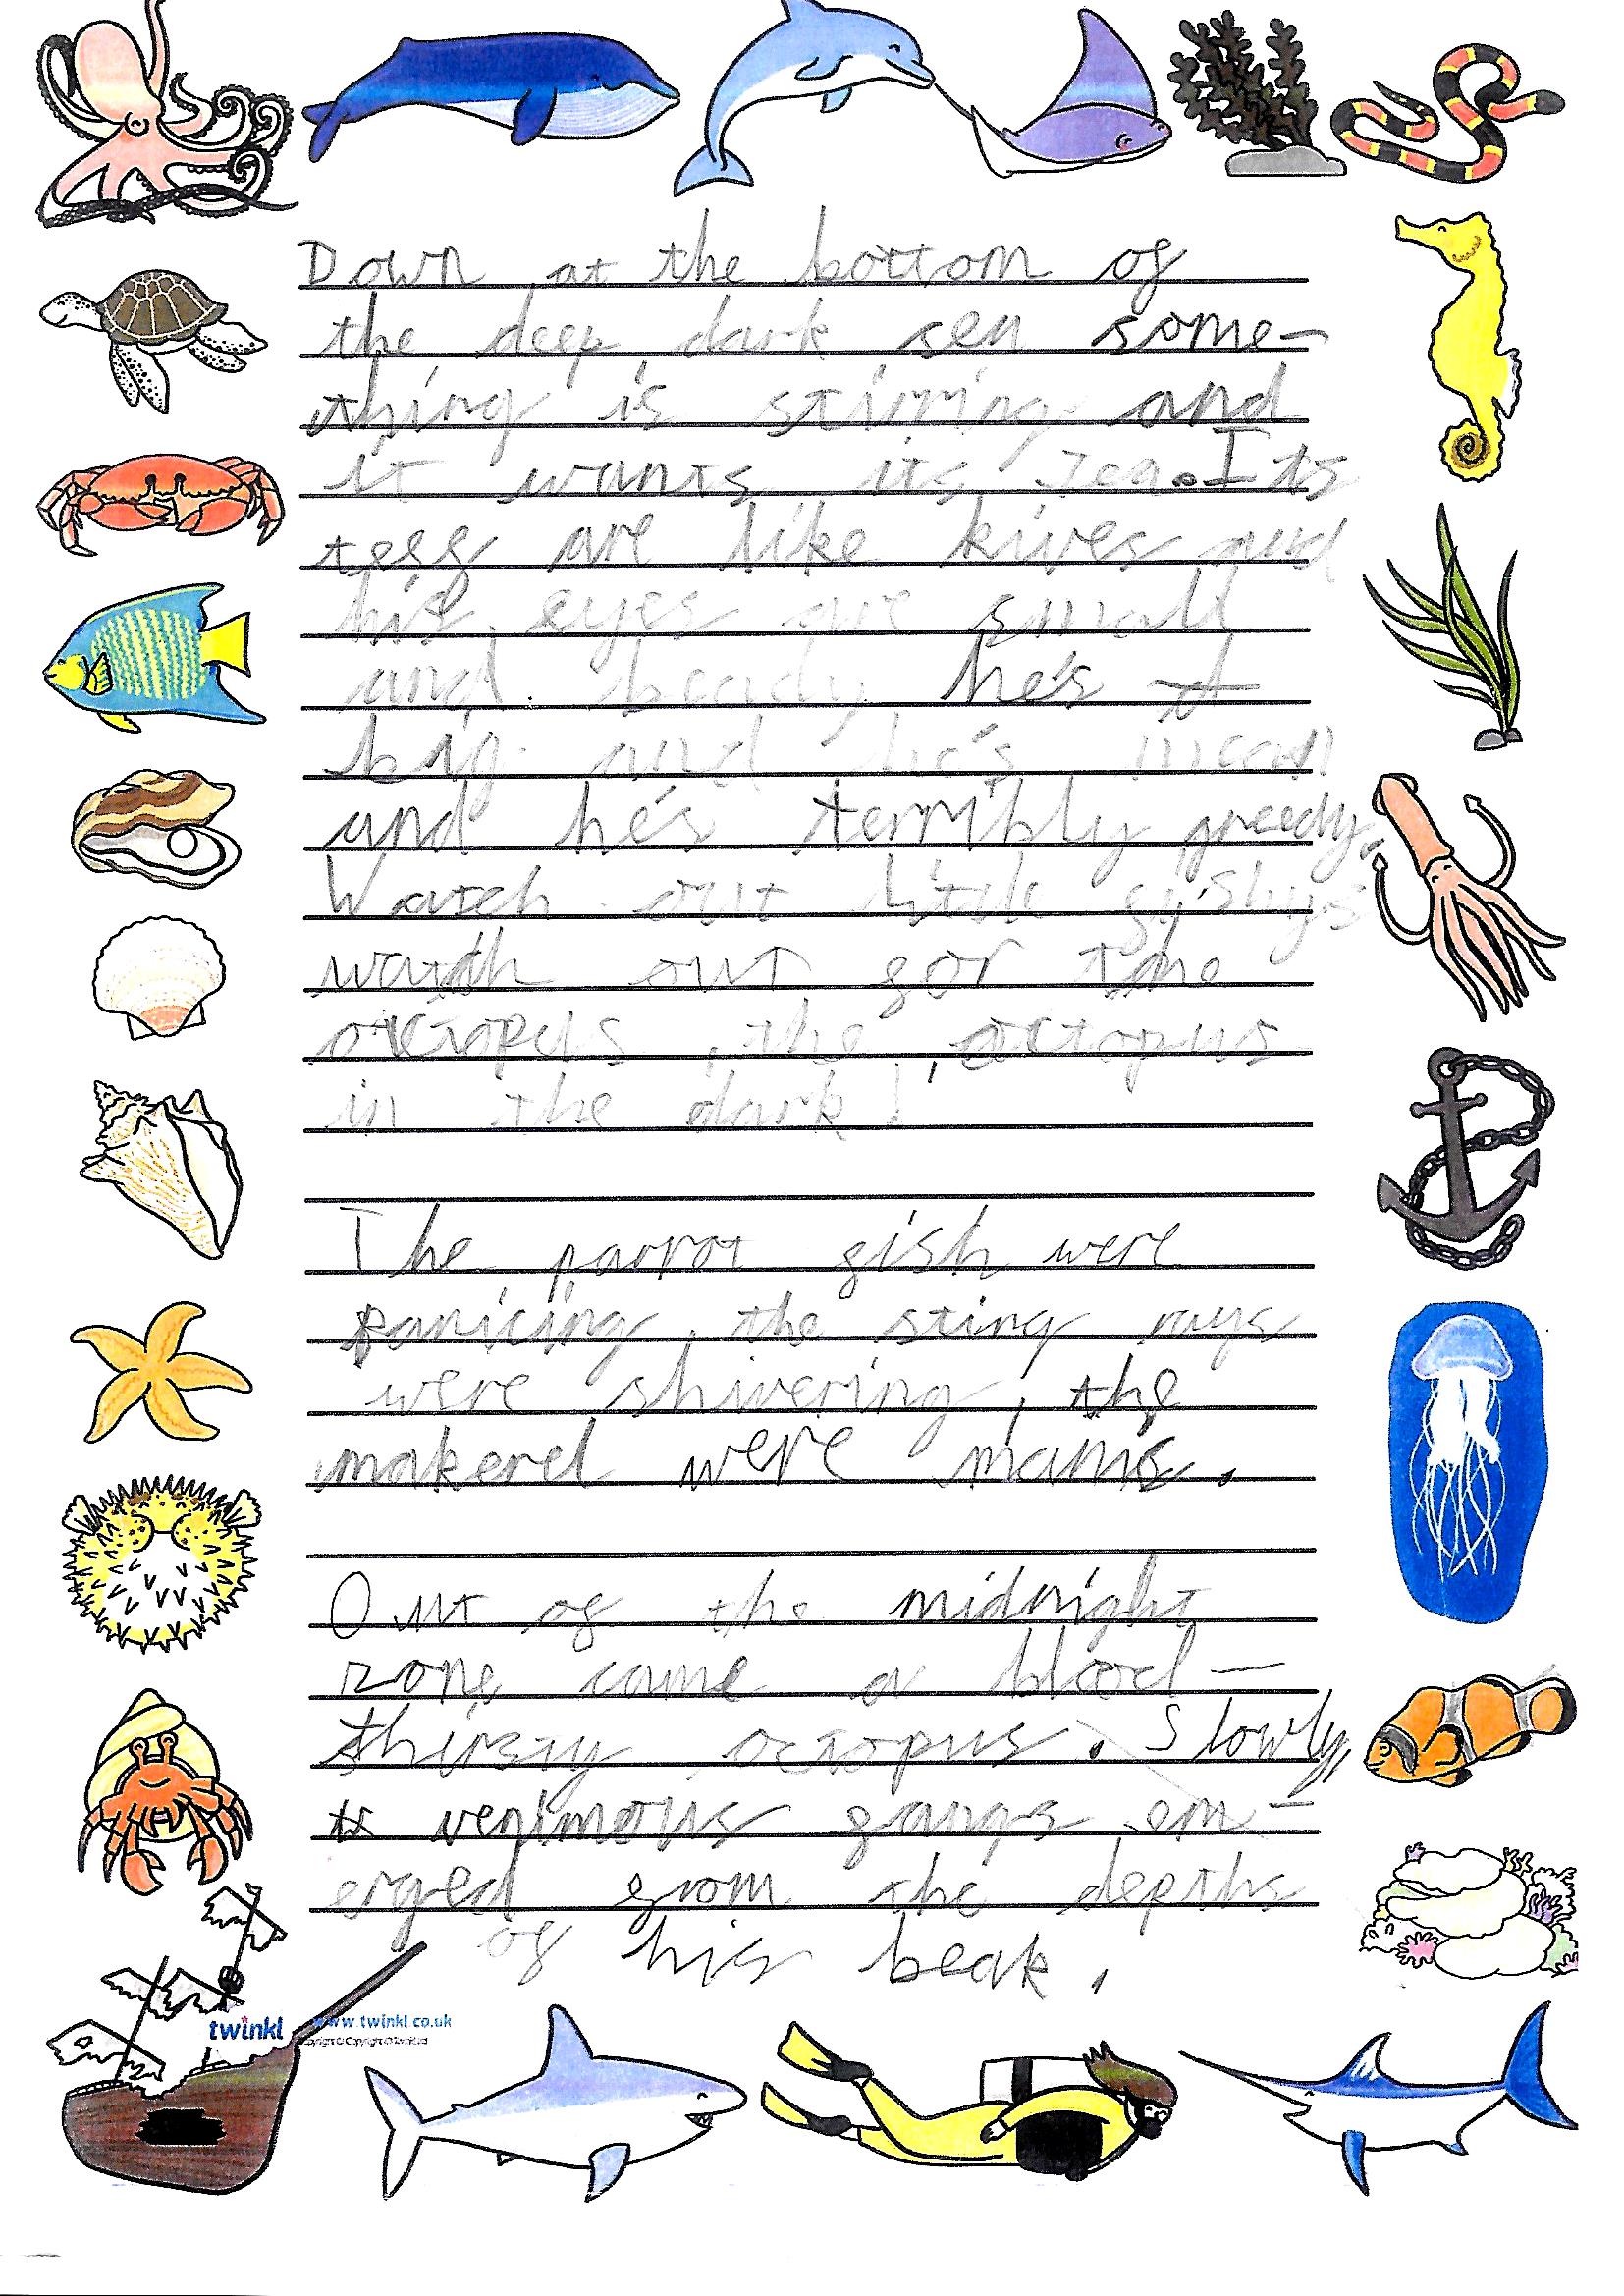 Down at the bottom of
the deep, dark sea some-
thing is stirring and
it wants its tea. Its
teef are like kives and
his eyes are small
and beady he's
big and he's mean
and he's terribly greedy.
Watch out little fishys
watch out for the
octopus, the octopus
in the dark!
The parrot fish were
panicing, the sting rays
were shivering, the
makerel were maning.
Out of the midnight
zone came a blood-
thirsty octopus. Slowly,
venimous fangs em-
erged from the depths
of his beak.
twinkl www.twinkl.co.uk